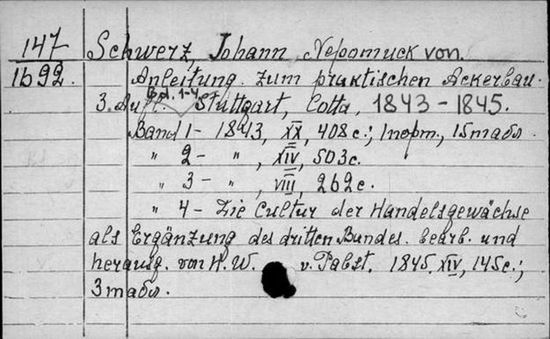 147 Schwerz, Johann Nepomuck von.
1692. Anleitung zum praktischen Ackerbau.
Bd. 1-4
3. Aufl. Stuttgart, Cotta, 1843-1845.
Band 1- 1843, XX, 408 с.; 1 портр., 15 табл.
" 2- ", XIV, 503 с.
" 3- ", VIII, 262 с.
" 4- Die Cultur der Handelsgewächse
als Ergänzung des dritten Bandes. bearb. und
herausg. von H. W. v. Pabst. 1845. XIV, 145 с.;
3 табл.